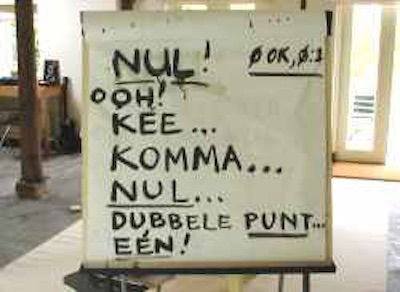 NUL!
Ø OK, Ø:1
OOH!
KEE...
KOMMA...
NUL...
DUBBELE PUNT...
EÉN!